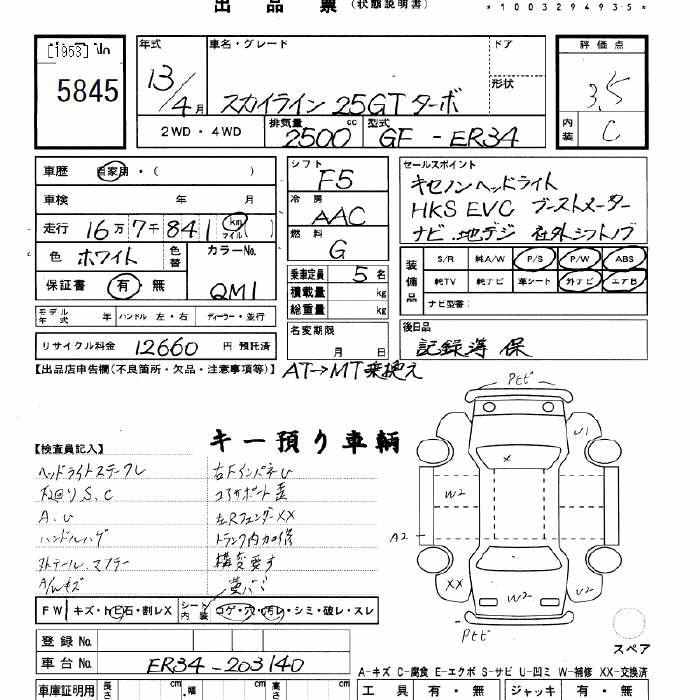 出品票 (状態説明書) *1003294935*
[1953] No
5845
年式 13/4月
車名・グレード スカイライン 25GT ターボ
ドア
形状
2WD・4WD 排気量 2500 cc 型式 GF-ER34
評価点 3.5
内装 C
車歴 自家用・( )
車検 年 月
走行 16万7千841 km マイル ( )
色 ホワイト 色替 カラーNo. QM1
保証書 有・無
モデル年式 年 ハンドル 左・右 ディーラー・並行
リサイクル料金 12660 円 預託済
シフト F5
冷房 AAC
燃料 G
乗車定員 5名
積載量 kg
総重量 kg
名変期限 月 日
セールスポイント
キセノンヘッドライト
HKS EVC ブーストメーター
ナビ.地デジ 社外シフトノブ
装備品 S/R 純A/W P/S P/W ABS
純TV 純ナビ 革シート 外ナビ エアB
ナビ型番:
後日品
記録簿 保
【出品店申告欄(不良箇所・欠品・注意事項等)】 AT→MT乗換え
キー預り車輌
【検査員記入】
ヘッドライトステークレ 右FインパネU
下回りS.C コアサポート歪
A.U 左RフェンダーXX
ハンドルハゲ トランク内加修
外テール.マフラー 構変要す
A/Wキズ
FW キズ・トビ石・割レX シート内装 コゲ・穴・汚レ・シミ・破レ・スレ
登録No.
車台No. ER34-203140
車庫証明用 長さ cm 幅 cm 高さ cm
Pモビ
U1
X
W2
W2
A2
XX
W2
W2
Pモビ
スペア
A-キズ C-腐食 E-エクボ S-サビ U-凹ミ W-補修 XX-交換済
工具 有・無 ジャッキ 有・無